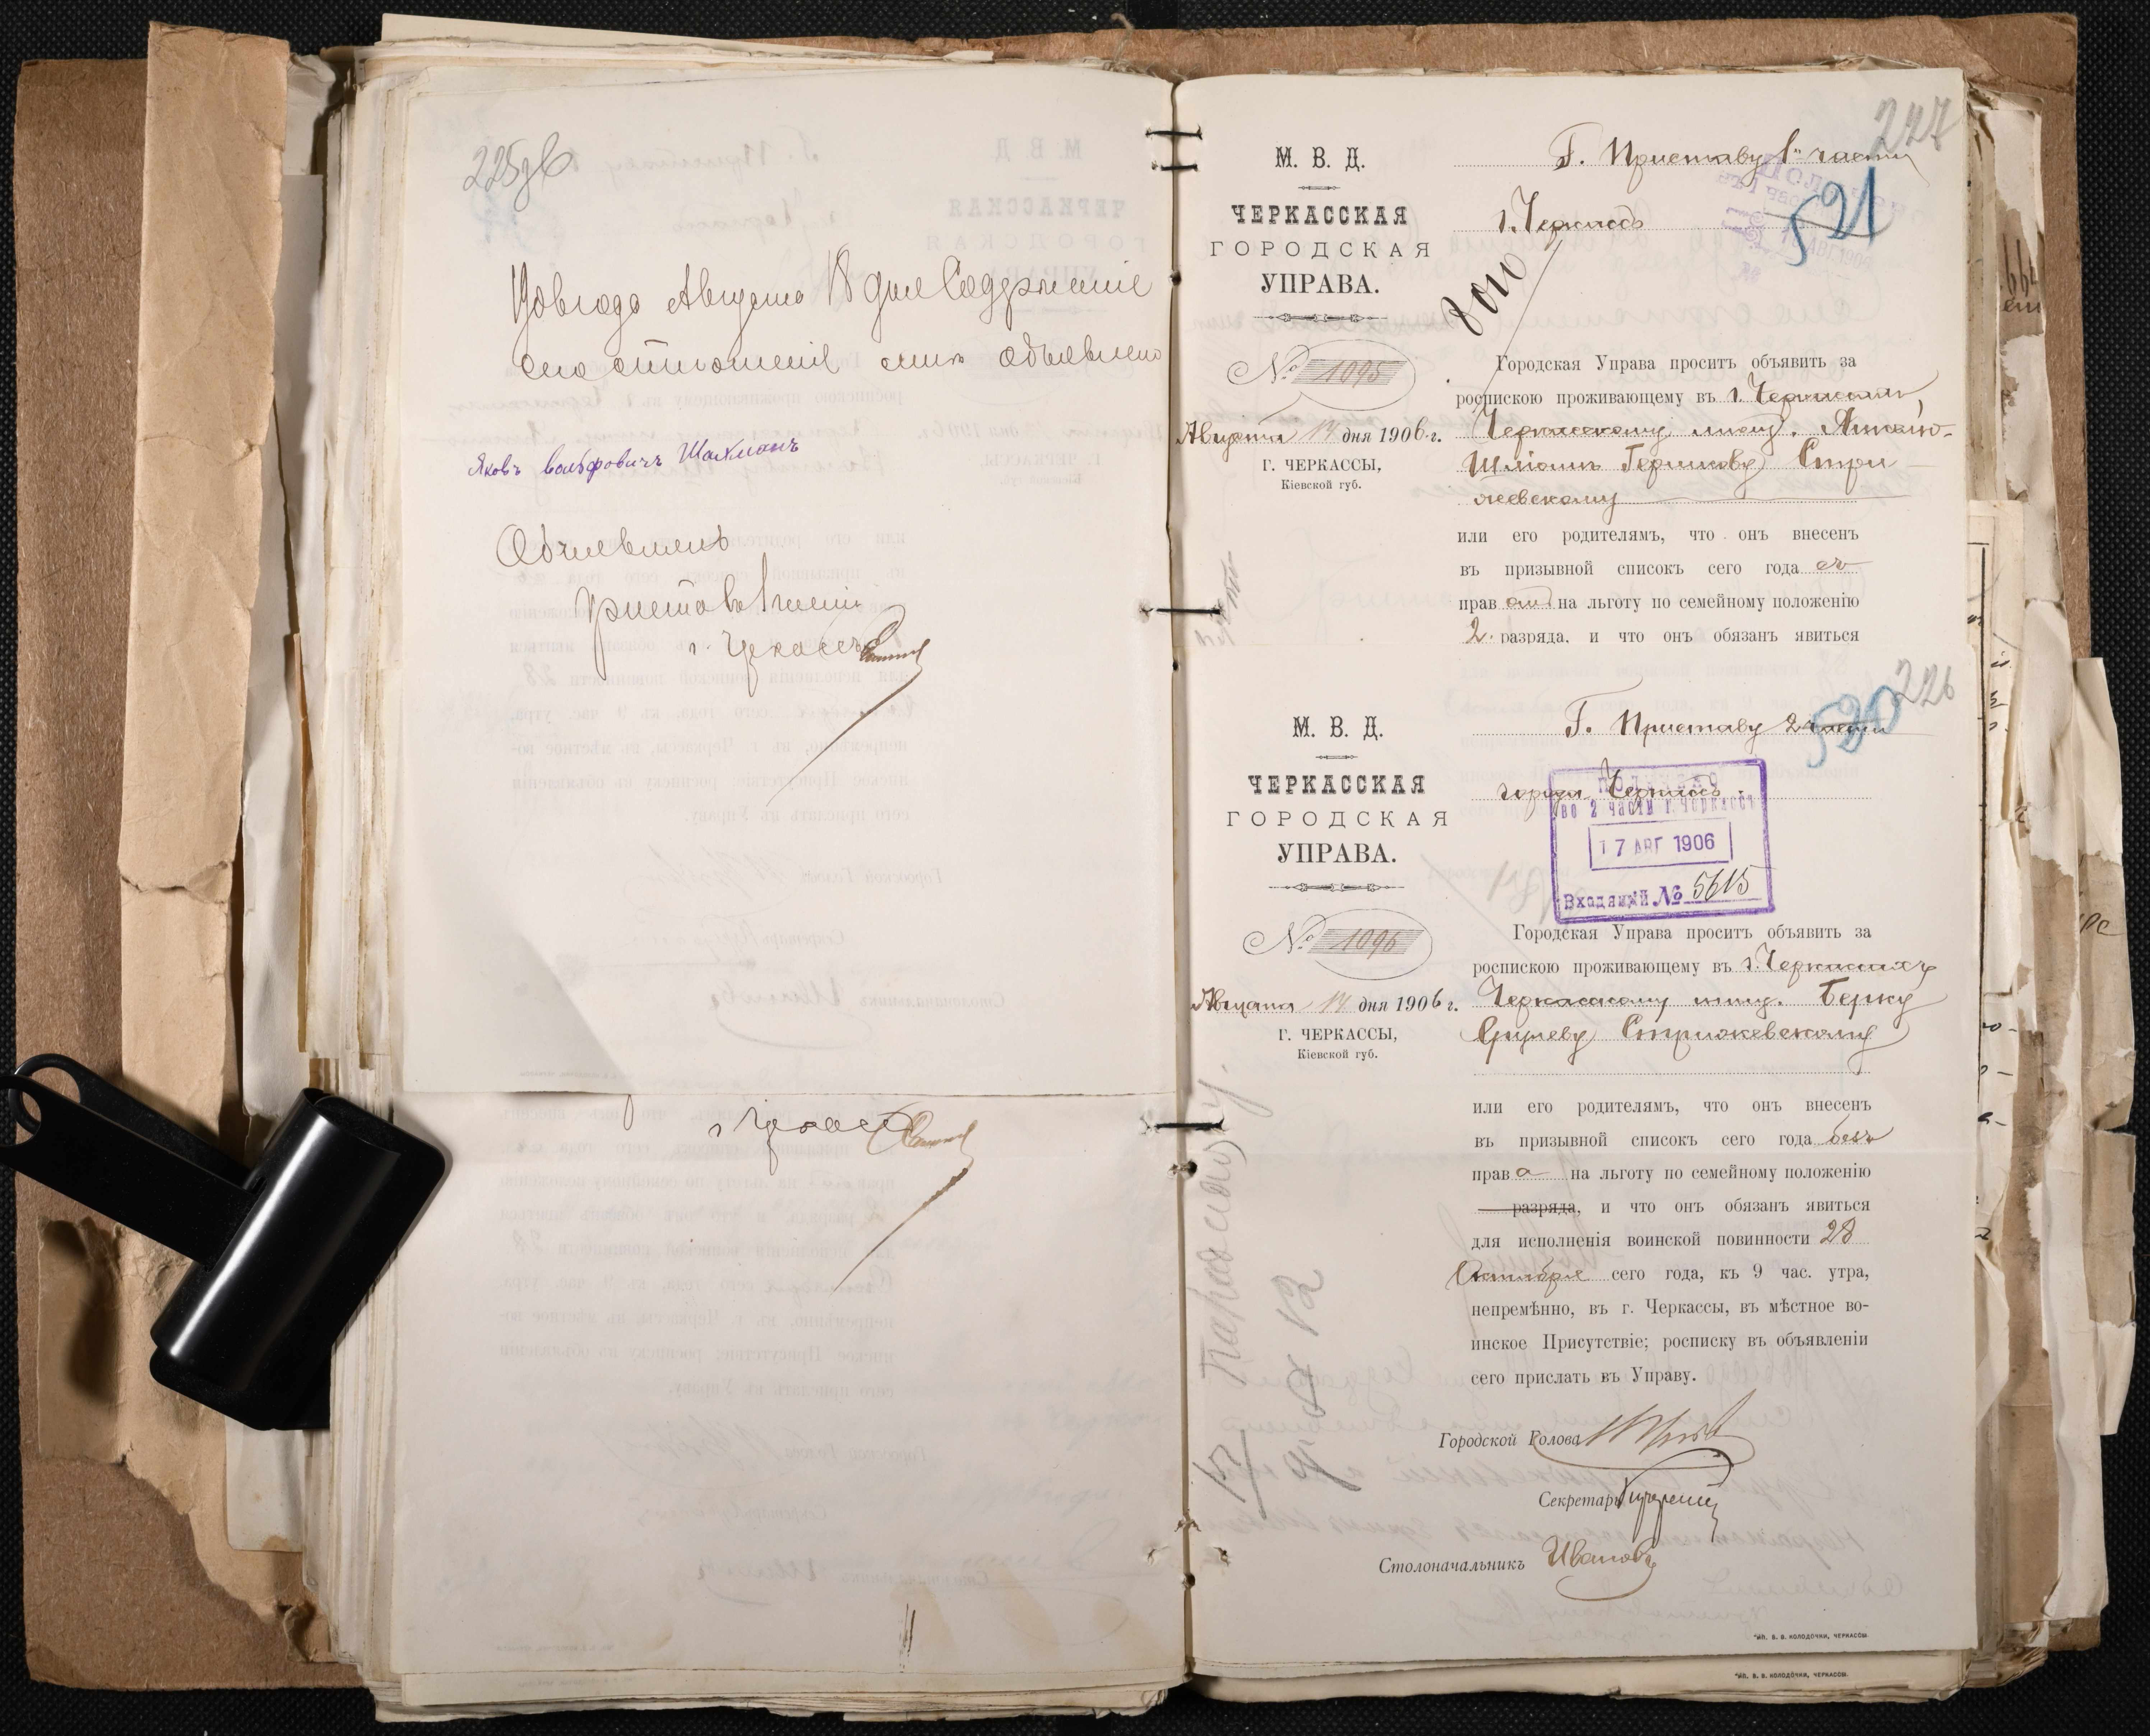 225об
1906 года Августа 18 дня Содержание
сего отношения мне объявлено
Яковъ Вольфовичъ Шахманъ
Объявленъ
Приставъ 1 части
г. Черкассъ
г. Черкассъ
227
М. В. Д.
ЧЕРКАССКАЯ
ГОРОДСКАЯ
УПРАВА.
№ 1095
Августа 14 дня 1906 г.
Г. ЧЕРКАССЫ,
Кіевской губ.
Г. Приставу 1й части
521
г. Черкассъ
Городская Управа проситъ объявить за
роспискою проживающему въ г. Черкассахъ,
Черкасскому мѣщ.
Гершкову Стри
жевскому
или его родителямъ, что онъ внесенъ
въ призывной списокъ сего года съ
прав ом на льготу по семейному положенію
2. разряда, и что онъ обязанъ явиться
226
М. В. Д.
ЧЕРКАССКАЯ
ГОРОДСКАЯ
УПРАВА.
№ 1096
Августа 14 дня 1906 г.
Г. ЧЕРКАССЫ,
Кіевской губ.
Г. Приставу 2 части
520
города Черкассъ.
ПОЛУЧЕНО
во 2 части г. Черкассъ
17 АВГ 1906
Входящій № 5615
Городская Управа проситъ объявить за
роспискою проживающему въ г. Черкассахъ
Черкасскому мѣщ. Берку
Срулеву Стрижевскому
или его родителямъ, что онъ внесенъ
въ призывной списокъ сего года безъ
прав а на льготу по семейному положенію
разряда, и что онъ обязанъ явиться
для исполненія воинской повинности 28
Октября сего года, къ 9 час. утра,
непремѣнно, въ г. Черкассы, въ мѣстное во-
инское Присутствіе; росписку въ объявленіи
сего прислать въ Управу.
Городской Голова
Секретарь
Столоначальникъ Ивановъ
ТИП. В. В. КОЛОДОЧКИ, ЧЕРКАССЫ.
ТИП. В. В. КОЛОДОЧКИ, ЧЕРКАССЫ.